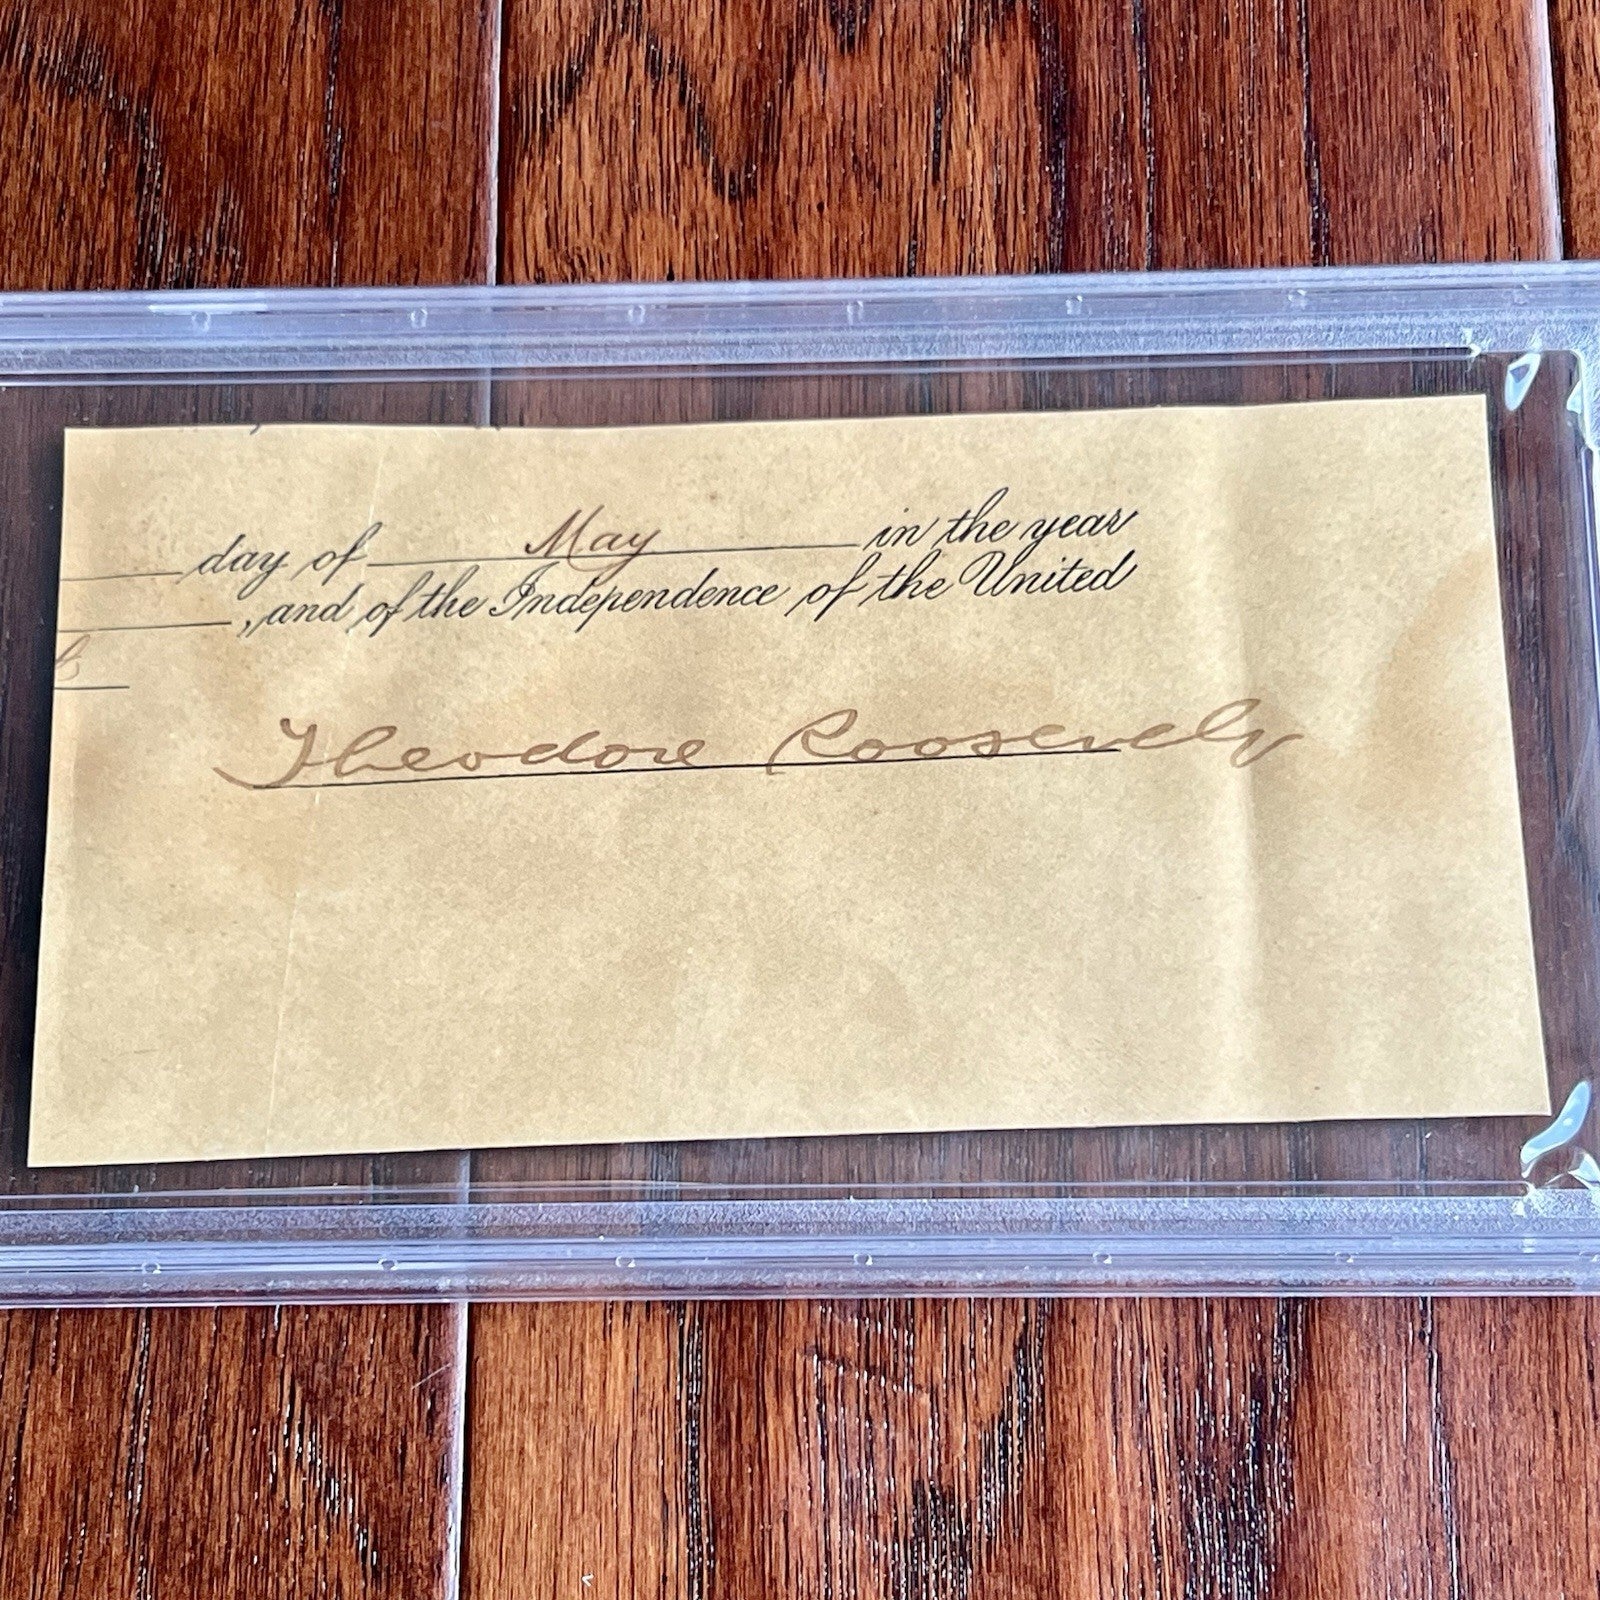 day of May in the year
, and of the Independence of the United
Theodore Roosevelt